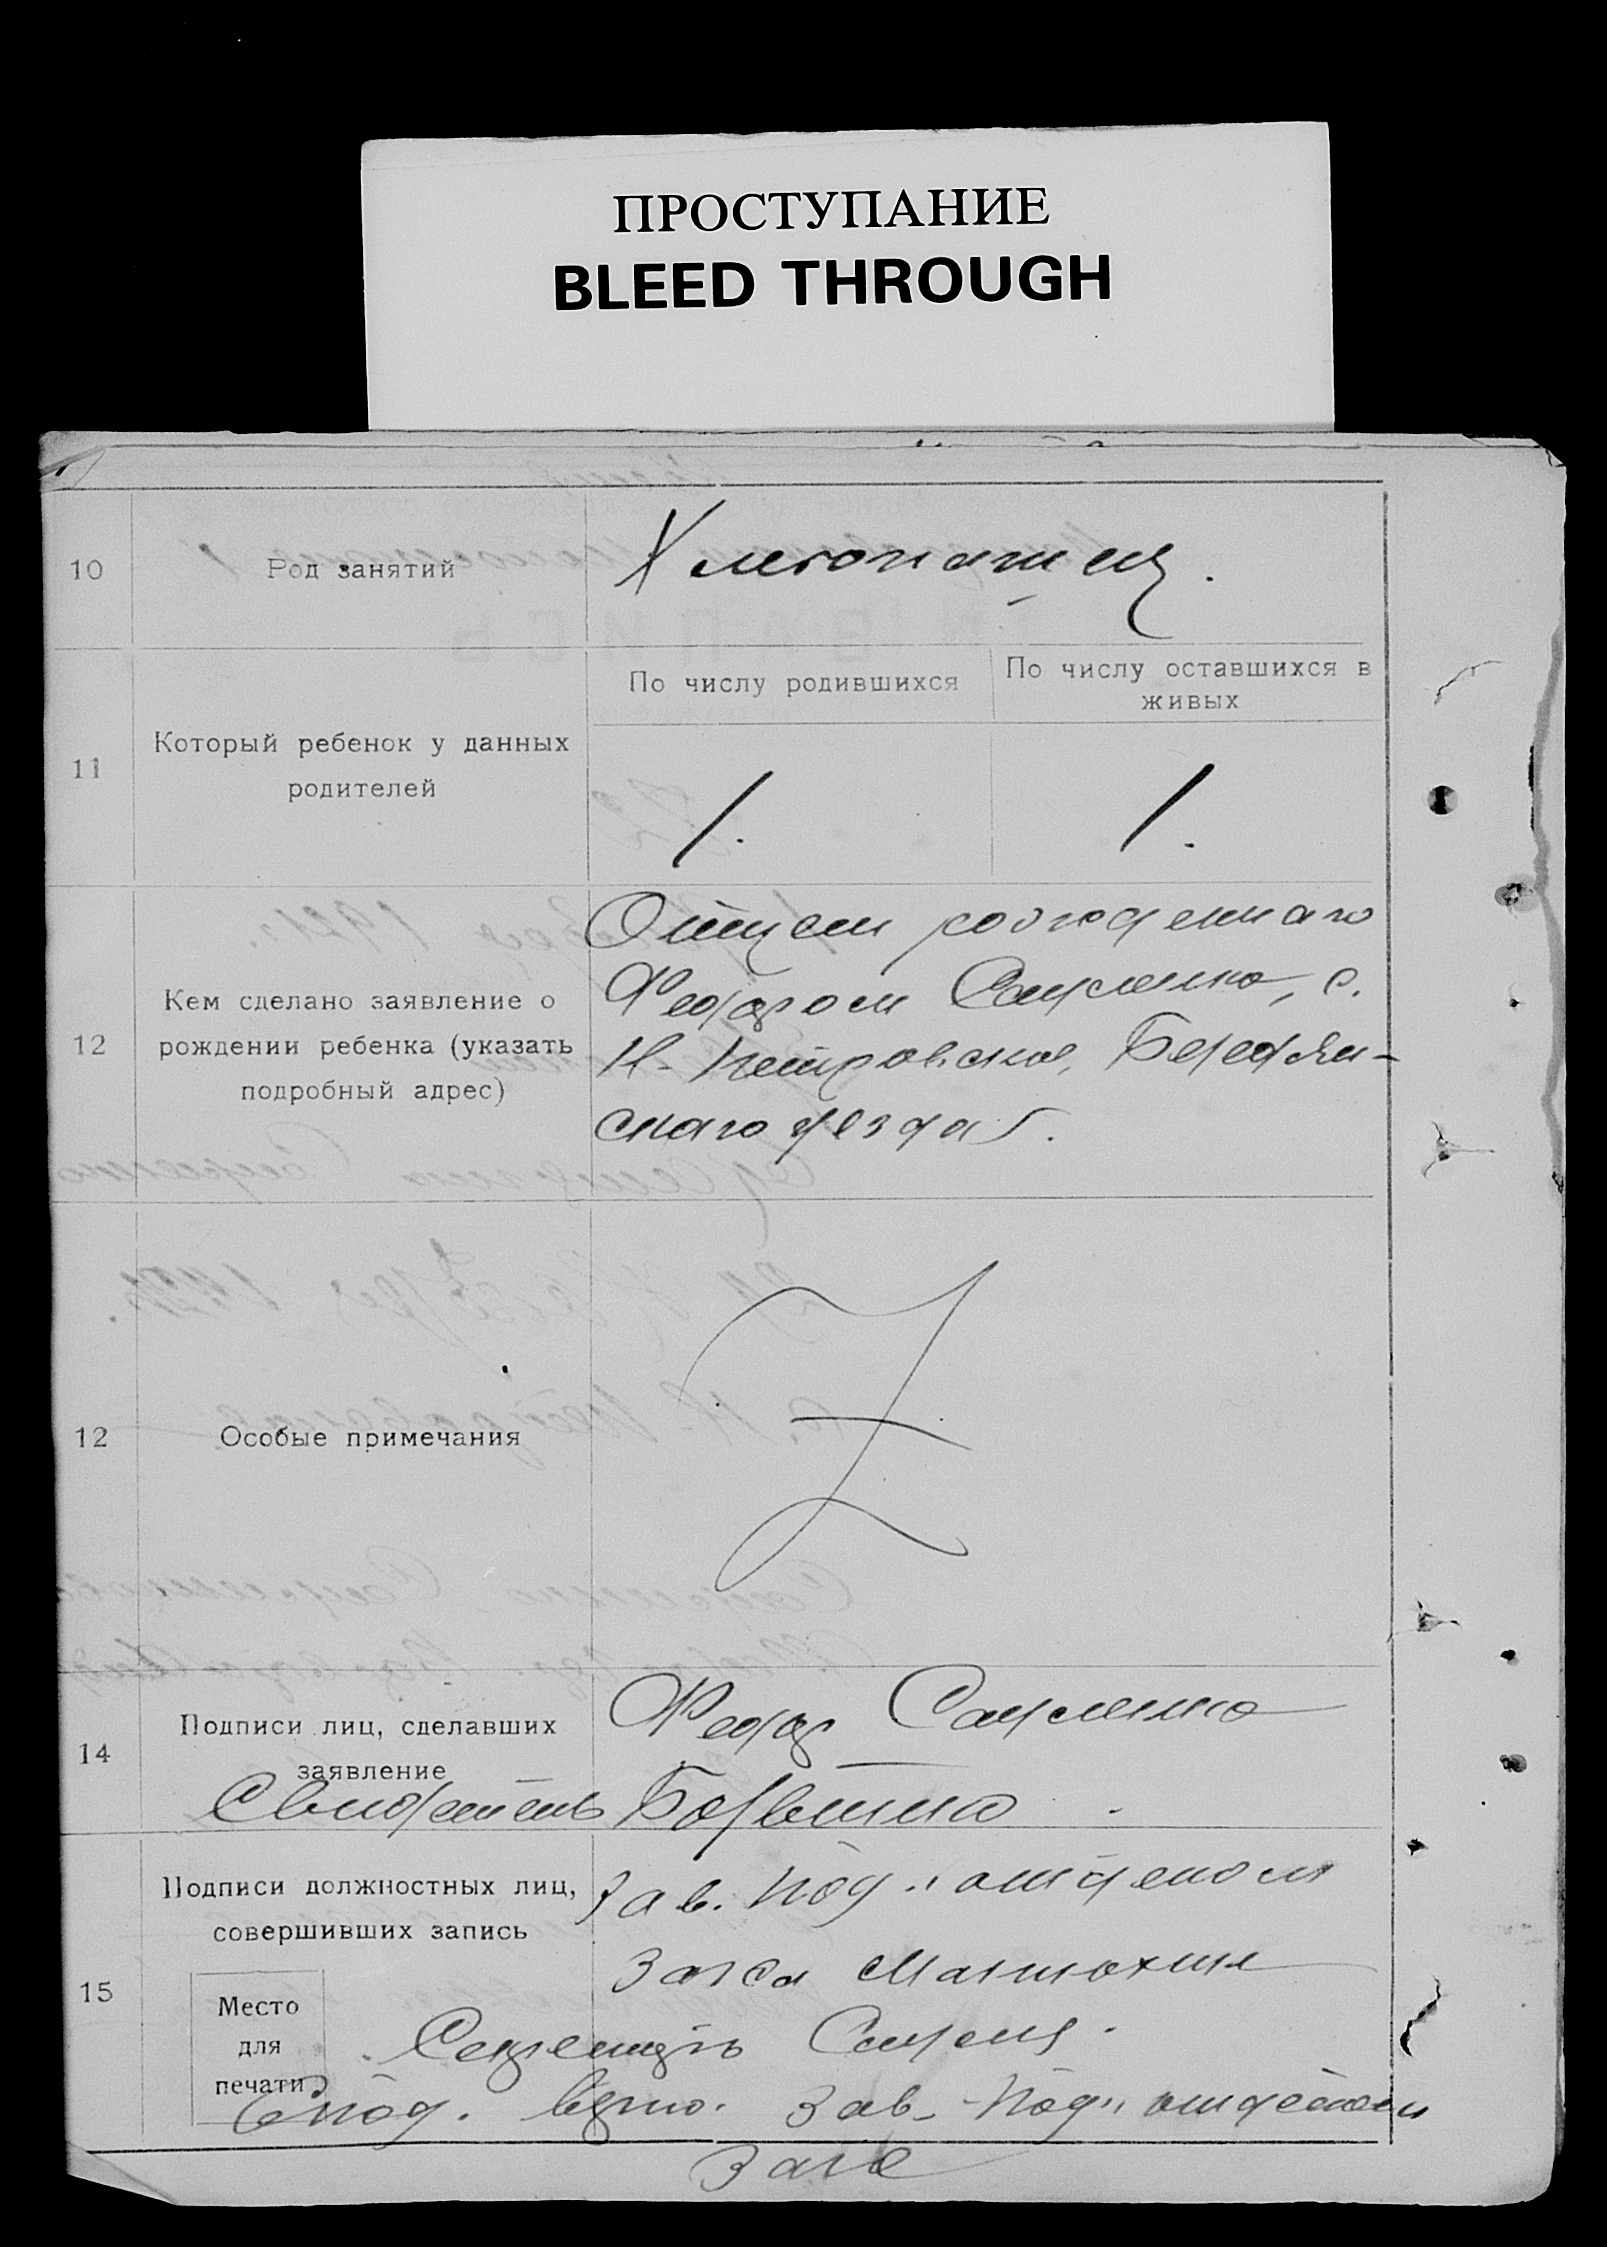 ПРОСТУПАНИЕ
BLEED THROUGH
10
Род занятий
Хлебопашец.
11
Который ребенок у данных
родителей
По числу родившихся
По числу оставшихся в
живых
1.
1.
12
Кем сделано заявление о
рождении ребенка (указать
подробный адрес)
Отцем рожденнаго
Федором, с.
Н-Петровское, Бердян-
скаго уезда.
12
Особые примечания
Z
14
Подписи лиц, сделавших
заявление
Федор
Свидетель
15
Подписи должностных лиц,
совершивших запись
Место
для
печати
Зав. под. отделом
Загса Матюхин
Секретарь
С под. верно. Зав. под. отделом
Загс